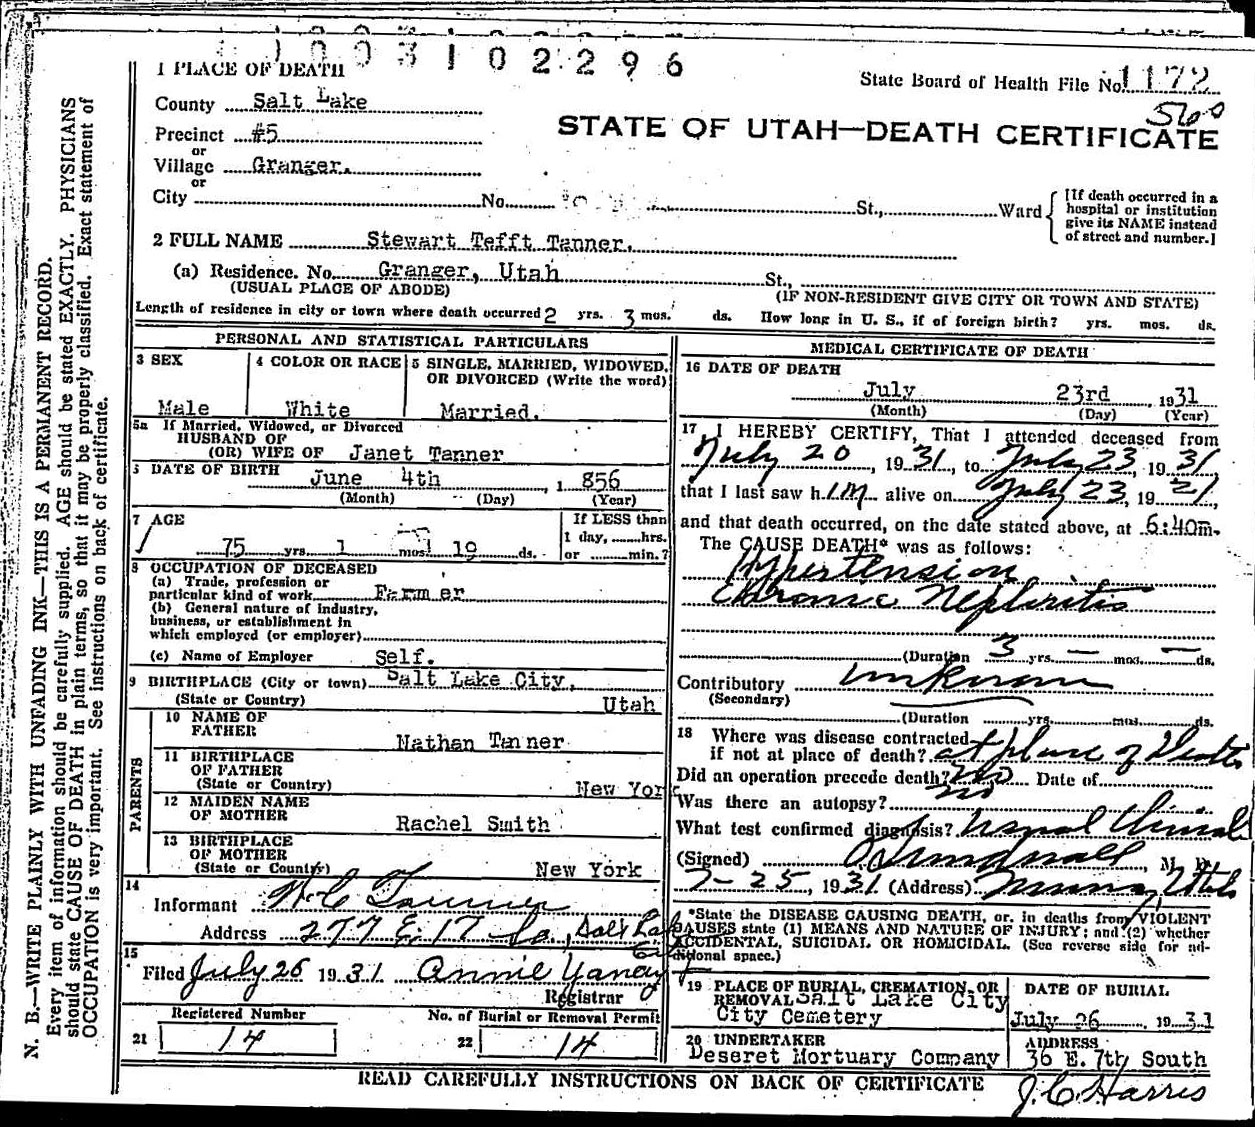 003102296
1 PLACE OF DEATH
State Board of Health File No. 1172
County Salt Lake
560
Precinct #5
STATE OF UTAH—DEATH CERTIFICATE
or
Village Granger.
or
City No. St., Ward
[If death occurred in a hospital or institution give its NAME instead of street and number.]
2 FULL NAME Stewart Tefft Tanner.
(a) Residence. No. Granger, Utah St.,
(USUAL PLACE OF ABODE) (IF NON-RESIDENT GIVE CITY OR TOWN AND STATE)
Length of residence in city or town where death occurred 2 yrs. 3 mos. ds. How long in U. S., if of foreign birth? yrs. mos. ds.
PERSONAL AND STATISTICAL PARTICULARS
3 SEX
Male
4 COLOR OR RACE
White
5 SINGLE, MARRIED, WIDOWED, OR DIVORCED (Write the word)
Married.
5a If Married, Widowed, or Divorced
HUSBAND OF
(OR) WIFE OF Janet Tanner
DATE OF BIRTH
June 4th, 1 856
(Month) (Day) (Year)
7 AGE
75 yrs. 1 mos. 19 ds.
If LESS than
1 day, hrs.
or min.?
8 OCCUPATION OF DECEASED
(a) Trade, profession or
particular kind of work Farmer
(b) General nature of industry,
business, or establishment in
which employed (or employer)
(c) Name of Employer Self.
9 BIRTHPLACE (City or town) Salt Lake City,
(State or Country) Utah
PARENTS
10 NAME OF
FATHER Nathan Tanner
11 BIRTHPLACE
OF FATHER
(State or Country) New York
12 MAIDEN NAME
OF MOTHER Rachel Smith
13 BIRTHPLACE
OF MOTHER
(State or Country) New York
14
Informant
Address 277 E. 17 So, Salt Lake City
15
Filed July 26 1931 Annie
Registrar
Registered Number
21 14
No. of Burial or Removal Permit
22 14
MEDICAL CERTIFICATE OF DEATH
16 DATE OF DEATH
July 23rd, 1931
(Month) (Day) (Year)
17 I HEREBY CERTIFY, That I attended deceased from
July 20, 1931, to July 23 1931,
that I last saw him alive on July 23, 1921,
and that death occurred, on the date stated above, at 6:40m.
The CAUSE DEATH* was as follows:
Hypertension
Chronic Nephritis
(Duration 3 yrs. — mos. — ds.
Contributory unknown
(Secondary)
(Duration yrs. mos. ds.
18 Where was disease contracted
if not at place of death? at place of Death
Did an operation precede death? no Date of
Was there an autopsy? no
What test confirmed diagnosis? Usual Clinical
(Signed) M. D.
7-25, 1931 (Address) Utah
*State the DISEASE CAUSING DEATH, or, in deaths from VIOLENT
CAUSES state (1) MEANS AND NATURE OF INJURY; and (2) whether
ACCIDENTAL, SUICIDAL OR HOMICIDAL. (See reverse side for additional space.)
19 PLACE OF BURIAL, CREMATION, OR
REMOVAL Salt Lake City
City Cemetery
DATE OF BURIAL
July 26, 1931
20 UNDERTAKER
Deseret Mortuary Company
ADDRESS
36 E. 7th South
READ CAREFULLY INSTRUCTIONS ON BACK OF CERTIFICATE
J. C. Harris
N. B.—WRITE PLAINLY WITH UNFADING INK—THIS IS A PERMANENT RECORD.
Every item of information should be carefully supplied. AGE should be stated EXACTLY. PHYSICIANS
should state CAUSE OF DEATH in plain terms, so that it may be properly classified. Exact statement of
OCCUPATION is very important. See instructions on back of certificate.